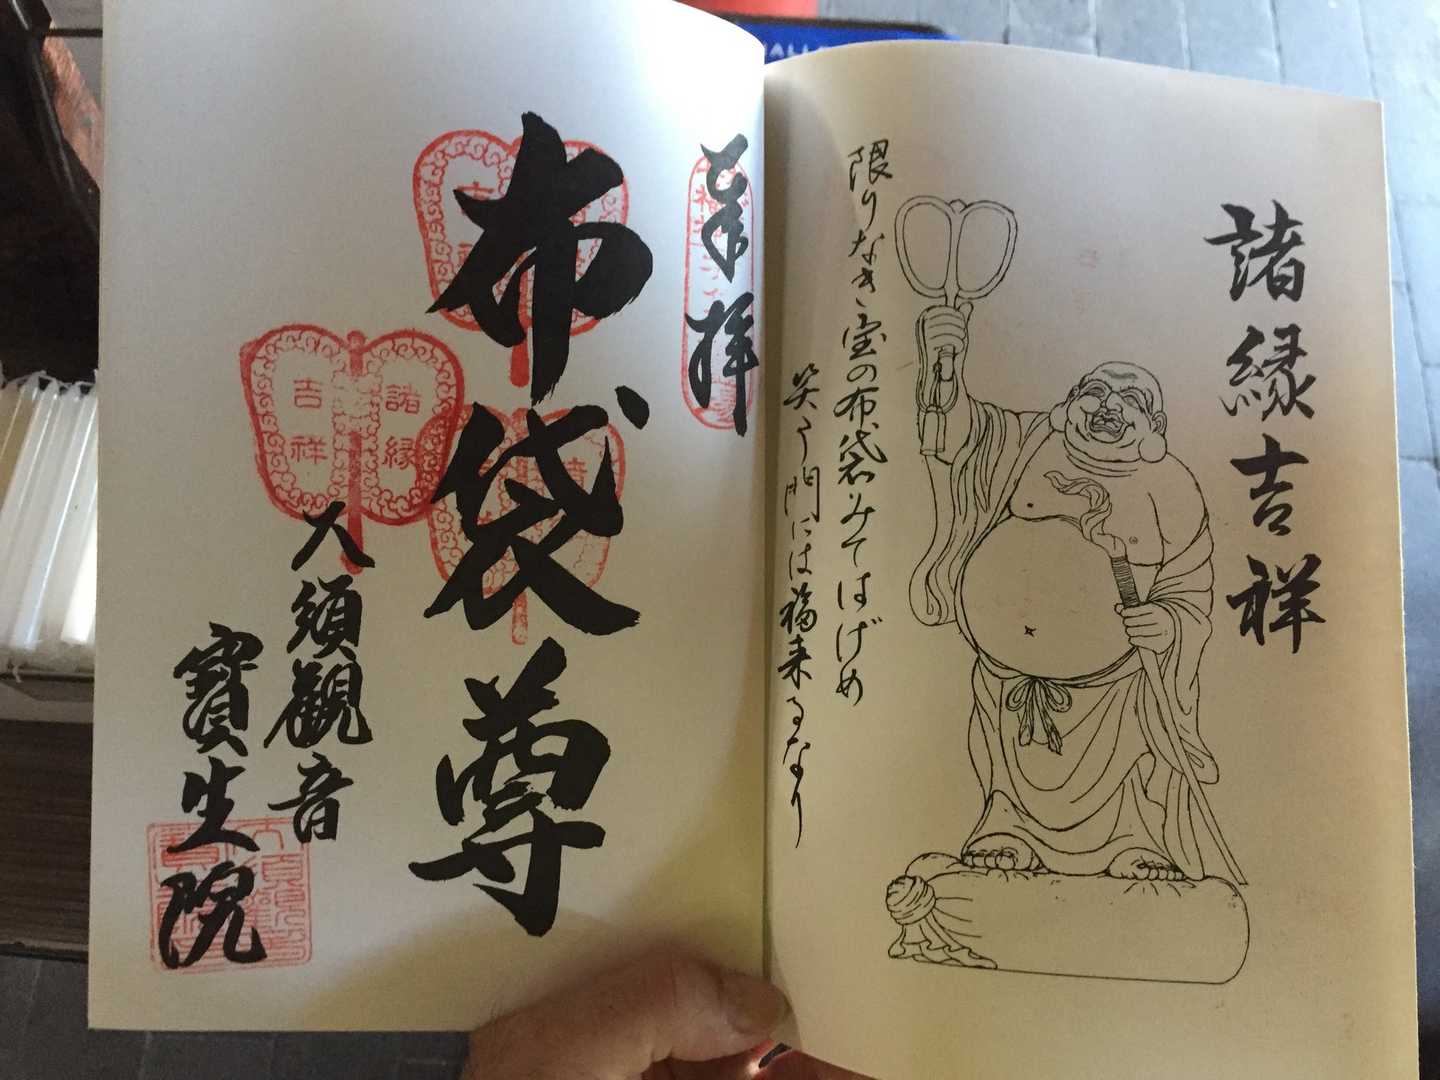 諸縁吉祥
限りなき宝の布袋みてはげめ
笑う門には福来るなり
奉拝
布袋尊
大須観音
寳生院
諸縁
吉祥